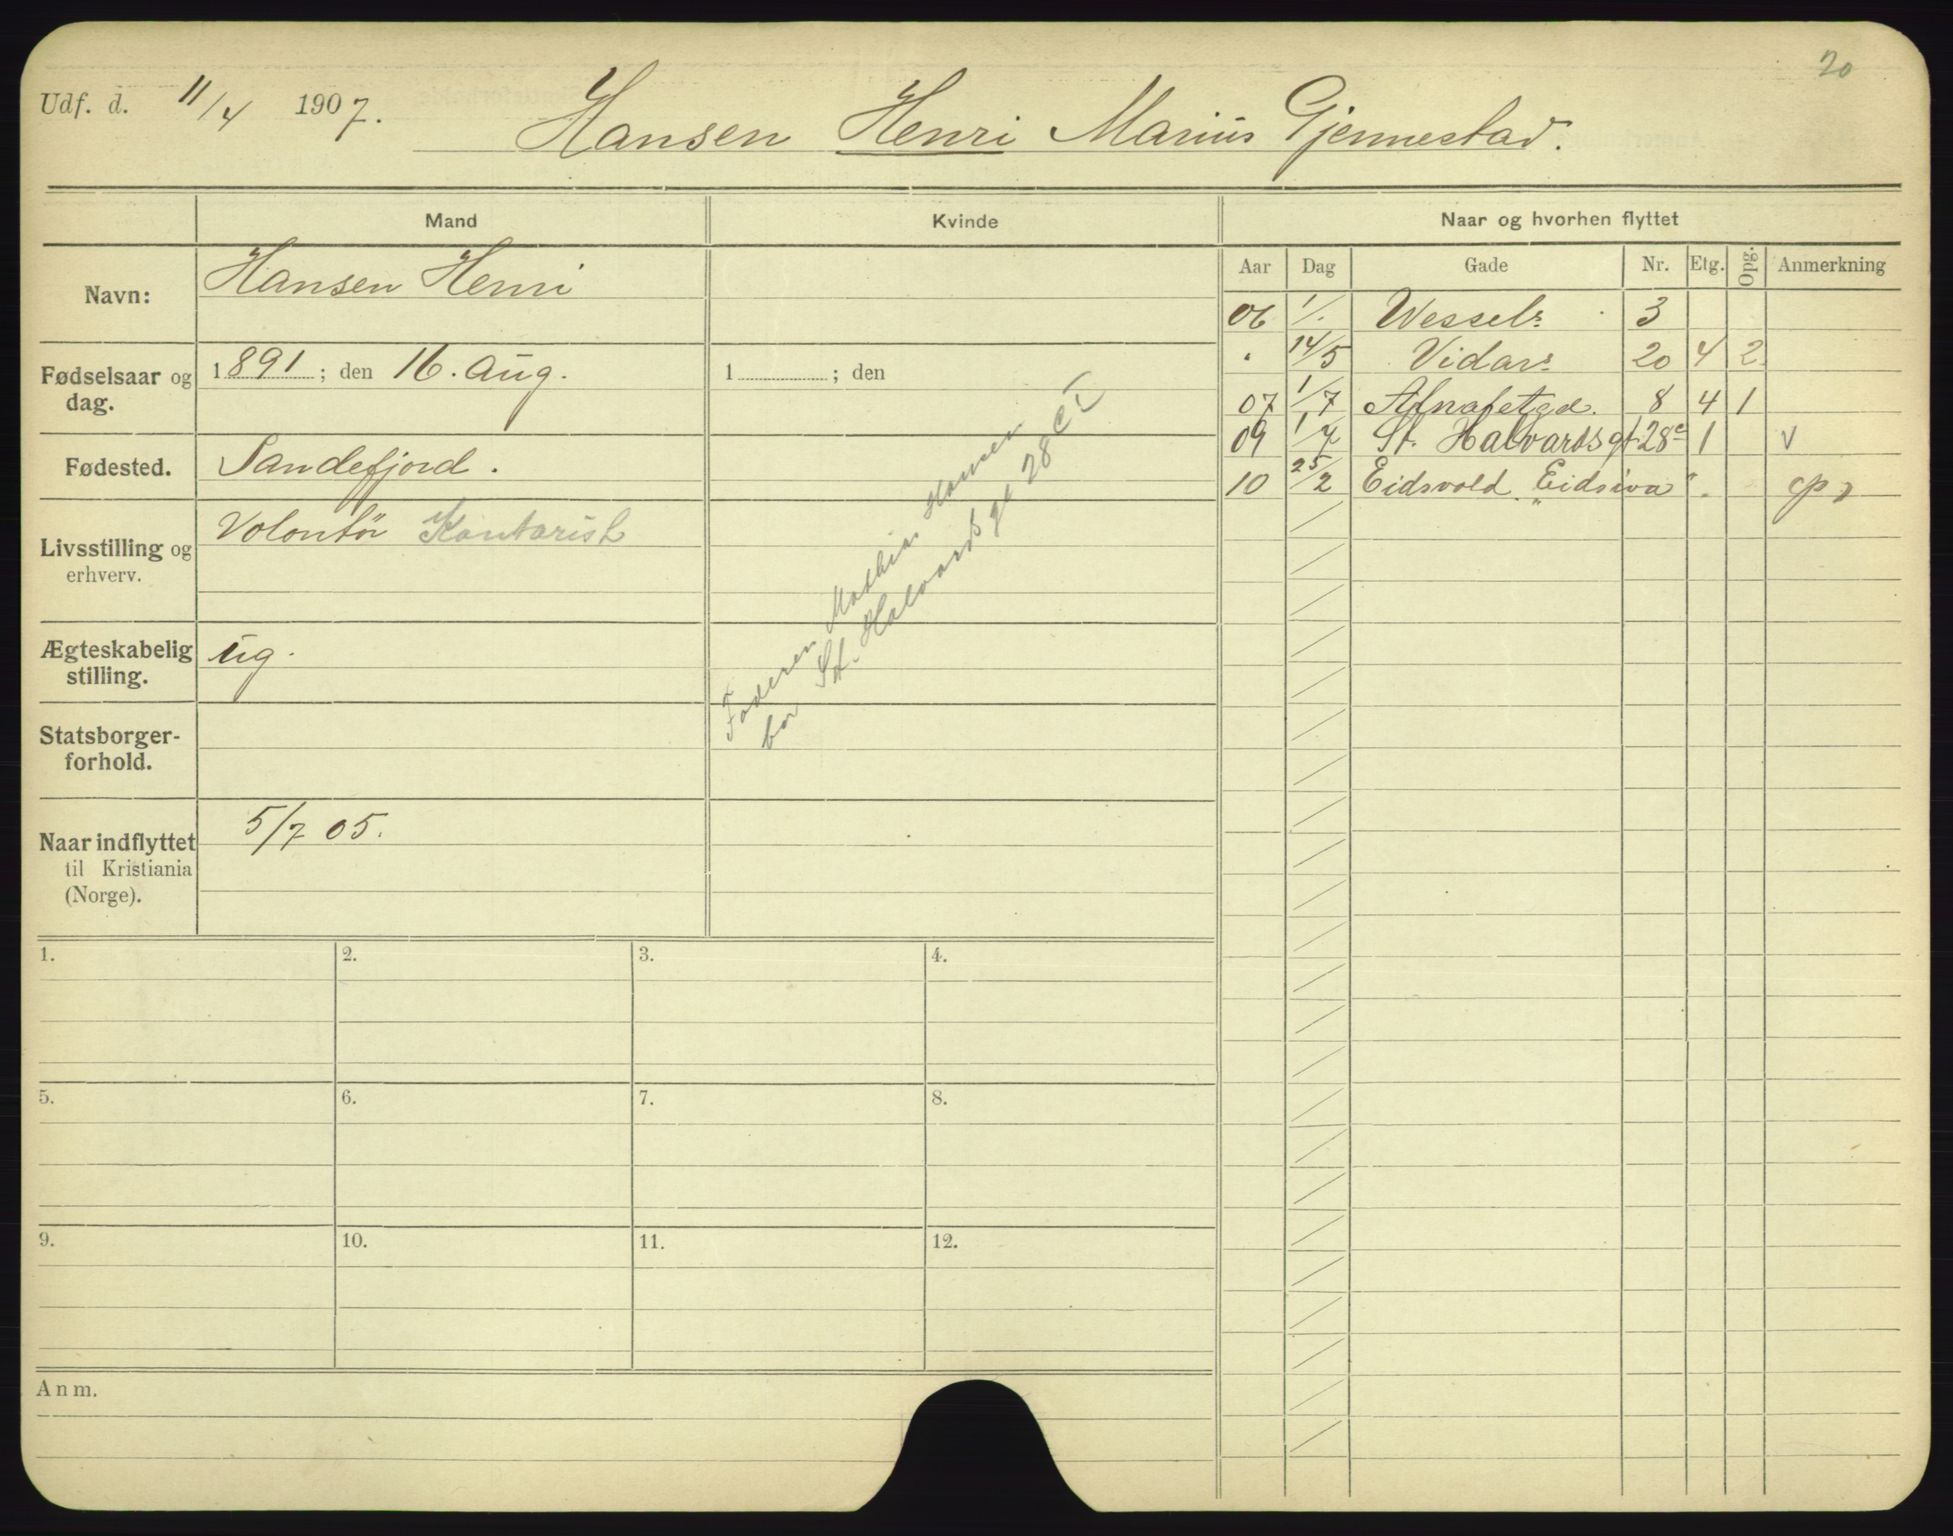 20
Udf. d. 11/4 1907.
Hansen Henri Marius Gjennestad.
Mand
Kvinde
Naar og hvorhen flyttet
Navn:
Hansen Henri
Fødselsaar og dag.
1891; den 16. Aug.
1 ; den
Fødested.
Sandefjord.
Livsstilling og erhverv.
Volontør Kontorist
Ægteskabelig stilling.
ug.
Statsborger-forhold.
Naar indflyttet til Kristiania (Norge).
5/7 05.
Faderen Mathias Hansen
bor St. Halvards gt 28 c I
Aar Dag Gade Nr. Etg. Opg. Anmerkning
06 1/. Wessels 3
" 14/5 Vidars 20 4 2
07 1/7 Alnafetgd. 8 4 1
09 1/7 St. Halvards gt 28c 1 v
10 25/2 Eidsvold "Eidsiva".
1. 2. 3. 4.
5. 6. 7. 8.
9. 10. 11. 12.
Anm.